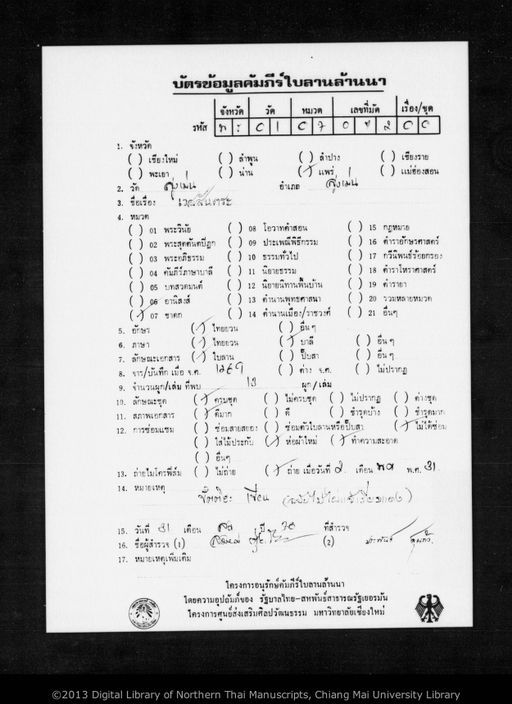 บัตรข้อมูลคัมภีร์ใบลานล้านนา
จังหวัด วัด หมวด เลขที่มัด เรื่อง/ชุด
รหัส พร 01 07 042 00
1. จังหวัด
( ) เชียงใหม่ ( ) ลำพูน ( ) ลำปาง ( ) เชียงราย
( ) พะเยา ( ) น่าน (/) แพร่ ( ) แม่ฮ่องสอน
2. วัด สูงเม่น อำเภอ สูงเม่น
3. ชื่อเรื่อง เวสสันตระ
4. หมวด
( ) 01 พระวินัย ( ) 08 โอวาทคำสอน ( ) 15 กฎหมาย
( ) 02 พระสุตตันตปิฎก ( ) 09 ประเพณีพิธีกรรม ( ) 16 ตำราอักษรศาสตร์
( ) 03 พระอภิธรรม ( ) 10 ธรรมทั่วไป ( ) 17 กวีนิพนธ์ร้อยกรอง
( ) 04 คัมภีร์ภาษาบาลี ( ) 11 นิยายธรรม ( ) 18 ตำราโหราศาสตร์
( ) 05 บทสวดมนต์ ( ) 12 นิยายนิทานพื้นบ้าน ( ) 19 ตำรายา
( ) 06 อานิสงส์ ( ) 13 ตำนานพุทธศาสนา ( ) 20 รวมหลายหมวด
(/) 07 ชาดก ( ) 14 ตำนานเมือง/ราชวงศ์ ( ) 21 อื่นๆ
5. อักษร (/) ไทยยวน ( ) อื่นๆ
6. ภาษา (/) ไทยยวน (/) บาลี ( ) อื่นๆ
7. ลักษณะเอกสาร (/) ใบลาน ( ) ปั๊บสา ( ) อื่นๆ
8. จาร/บันทึก เมื่อ จ.ศ. ( ) ต่าง จ.ศ. ( ) ไม่ปรากฏ
9. จำนวนผูก/เล่ม ที่พบ 13 ผูก/เล่ม
10. ลักษณะชุด (/) ครบชุด ( ) ไม่ครบชุด ( ) ไม่ปรากฏ ( ) ต่างชุด
11. สภาพเอกสาร (/) ดีมาก ( ) ดี ( ) ชำรุดบ้าง ( ) ชำรุดมาก
12. การซ่อมแซม ( ) ซ่อมสายสยอง ( ) ซ่อมตัวใบลานหรือปั๊บสา (/) ไม่ได้ซ่อม
( ) ใส่ไม้ประกับ (/) ห่อผ้าใหม่ (/) ทำความสะอาด
( ) อื่นๆ
13. ถ่ายไมโครฟิล์ม ( ) ไม่ถ่าย (/) ถ่าย เมื่อวันที่ 2 เดือน พ.ศ. 31
14. หมายเหตุ
15. วันที่ 31 เดือน ปี 30 ที่สำรวจ
16. ชื่อผู้สำรวจ (1) (2)
17. หมายเหตุเพิ่มเติม
โครงการอนุรักษ์คัมภีร์ใบลานล้านนา
โดยความอุปถัมภ์ของ รัฐบาลไทย-สหพันธ์สาธารณรัฐเยอรมัน
โครงการศูนย์ส่งเสริมศิลปวัฒนธรรม มหาวิทยาลัยเชียงใหม่
©2013 Digital Library of Northern Thai Manuscripts, Chiang Mai University Library